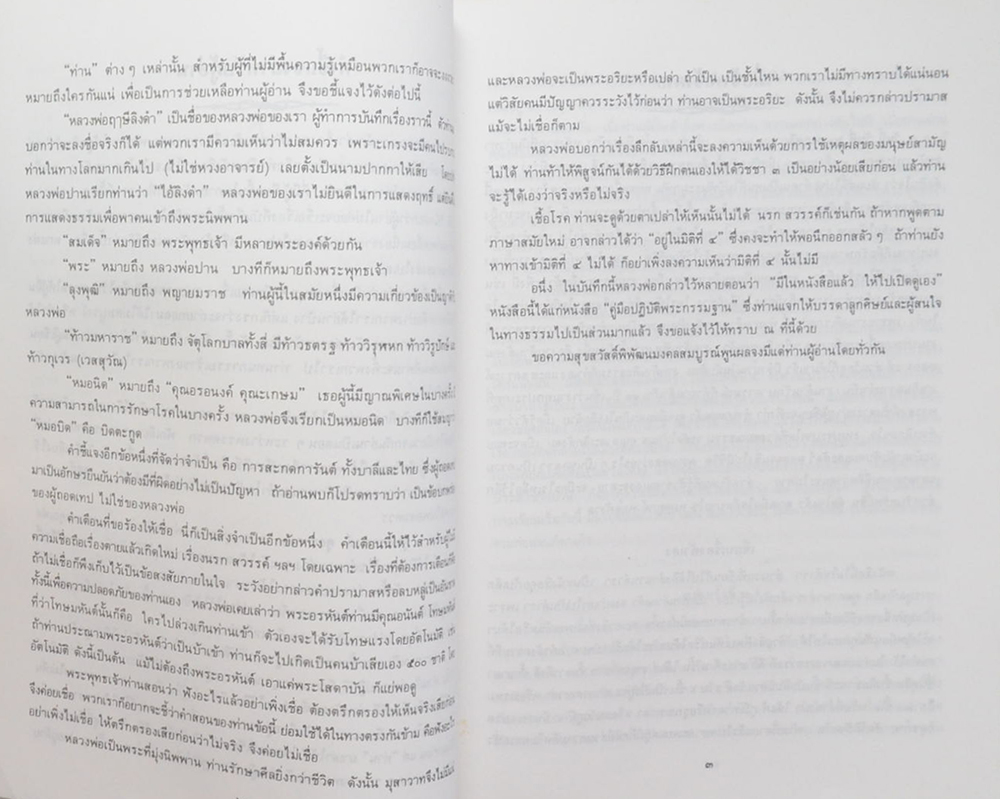 “ท่าน” ต่าง ๆ เหล่านั้น สำหรับผู้ที่ไม่มีพื้นความรู้เหมือนพวกเราก็อาจจะ
หมายถึงใครกันแน่ เพื่อเป็นการช่วยเหลือท่านผู้อ่าน จึงขอชี้แจงไว้ดังต่อไปนี้
“หลวงพ่อฤาษีลิงดำ” เป็นชื่อของหลวงพ่อของเรา ผู้ทำการบันทึกเรื่องราวนี้
บอกว่าจะลงชื่อจริงก็ได้ แต่พวกเรามีความเห็นว่าไม่สมควร เพราะเกรงจะมีคนไป
ท่านในทางโลกมากเกินไป (ไม่ใช่หวงอาจารย์) เลยตั้งเป็นนามปากกาให้เสีย
หลวงพ่อปานเรียกท่านว่า “ไอ้ลิงดำ” หลวงพ่อของเราไม่ยินดีในการแสดงฤทธิ์
การแสดงธรรมเพื่อพาคนเข้าถึงพระนิพพาน
“สมเด็จ” หมายถึง พระพุทธเจ้า มีหลายพระองค์ด้วยกัน
“พระ” หมายถึง หลวงพ่อปาน บางทีก็หมายถึงพระพุทธเจ้า
“ลุงพุฒิ” หมายถึง พญายมราช ท่านผู้นี้ในสมัยหนึ่งมีความเกี่ยวข้องเป็น
หลวงพ่อ
“ท้าวมหาราช” หมายถึง จัตุโลกบาลทั้งสี่ มีท้าวธตรฐ ท้าววิรุฬหก ท้าววิรูปักษ์
ท้าวกุเวร (เวสสุวัณ)
“หมอนิด” หมายถึง “คุณอรอนงค์ คุณะเกษม” เธอผู้นี้มีญาณพิเศษในบางครั้ง
ความสามารถในการรักษาโรคในบางครั้ง หลวงพ่อจึงเรียกเป็นหมอนิด บางทีก็ใช้
“หมอบิด” คือ บิดตะกูด
คำชี้แจงอีกข้อหนึ่งที่จัดว่าจำเป็น คือ การสะกดการันต์ ทั้งบาลีและไทย ซึ่งผู้ถอด
มาเป็นอักษรยืนยันว่าต้องมีที่ผิดอย่างไม่เป็นปัญหา ถ้าอ่านพบก็โปรดทราบว่า เป็นข้อบกพร่อง
ของผู้ถอดเทป ไม่ใช่ของหลวงพ่อ
คำเตือนที่ขอร้องให้เชื่อ นี่ก็เป็นสิ่งจำเป็นอีกข้อหนึ่ง คำเตือนนี้ให้ไว้สำหรับผู้
ความเชื่อถือเรื่องตายแล้วเกิดใหม่ เรื่องนรก สวรรค์ ฯลฯ โดยเฉพาะ เรื่องที่ต้องการเตือน
ถ้าไม่เชื่อก็พึงเก็บไว้เป็นข้อสงสัยภายในใจ ระวังอย่ากล่าวคำปรามาสหรือลบหลู่เป็น
ทั้งนี้เพื่อความปลอดภัยของท่านเอง หลวงพ่อเคยเล่าว่า พระอรหันต์ท่านมีคุณอนันต์
ที่ว่าโทษมหันต์นั้นก็คือ ใครไปล่วงเกินท่านเข้า ตัวเองจะได้รับโทษแรงโดยอัตโนมัติ
ถ้าท่านประณามพระอรหันต์ว่าเป็นบ้าเข้า ท่านก็จะไปเกิดเป็นคนบ้าเสียเอง ๕๐๐ ชาติ
อัตโนมัติ ดังนี้เป็นต้น แม้ไม่ต้องถึงพระอรหันต์ เอาแค่พระโสดาบัน ก็แย่พอดู
พระพุทธเจ้าท่านสอนว่า ฟังอะไรแล้วอย่าเพิ่งเชื่อ ต้องตรึกตรองให้เห็นจริงเสียก่อน
จึงค่อยเชื่อ พวกเราก็อยากจะชี้ว่าคำสอนของท่านข้อนี้ ย่อมใช้ได้ในทางตรงกันข้าม
อย่าเพิ่งไม่เชื่อ ให้ตรึกตรองเสียก่อนว่าไม่จริง จึงค่อยไม่เชื่อ
หลวงพ่อเป็นพระที่มุ่งนิพพาน ท่านรักษาศีลยิ่งกว่าชีวิต ดังนั้น มุสาวาทจึง
และหลวงพ่อจะเป็นพระอริยะหรือเปล่า ถ้าเป็น เป็นชั้นไหน พวกเราไม่มีทางทราบได้แน่นอน
แต่วิสัยคนมีปัญญาควรระวังไว้ก่อนว่า ท่านอาจเป็นพระอริยะ ดังนั้น จึงไม่ควรกล่าวปรามาส
แม้จะไม่เชื่อก็ตาม
หลวงพ่อบอกว่าเรื่องลึกลับเหล่านี้จะลงความเห็นด้วยการใช้เหตุผลของมนุษย์สามัญ
ไม่ได้ ท่านท้าให้พิสูจน์กันได้ด้วยวิธีฝึกตนเองให้ได้วิชชา ๓ เป็นอย่างน้อยเสียก่อน แล้วท่าน
จะรู้ได้เองว่าจริงหรือไม่จริง
เชื้อโรค ท่านจะดูด้วยตาเปล่าให้เห็นนั้นไม่ได้ นรก สวรรค์ก็เช่นกัน ถ้าหากพูดตาม
ภาษาสมัยใหม่ อาจกล่าวได้ว่า “อยู่ในมิติที่ ๔” ซึ่งคงจะทำให้พอนึกออกสลัว ๆ ถ้าท่านยัง
หาทางเข้ามิติที่ ๔ ไม่ได้ ก็อย่าเพิ่งลงความเห็นว่ามิติที่ ๔ นั้นไม่มี
อนึ่ง ในบันทึกนี้หลวงพ่อกล่าวไว้หลายตอนว่า “มีในหนังสือแล้ว ให้ไปเปิดดูเอง”
หนังสือนี้ได้แก่หนังสือ “คู่มือปฏิบัติพระกรรมฐาน” ซึ่งท่านแจกให้บรรดาลูกศิษย์และผู้สนใจ
ในทางธรรมไปเป็นส่วนมากแล้ว จึงขอแจ้งไว้ให้ทราบ ณ ที่นี้ด้วย
ขอความสุขสวัสดิ์พิพัฒนมงคลสมบูรณ์พูนผลจงมีแด่ท่านผู้อ่านโดยทั่วกัน
๓